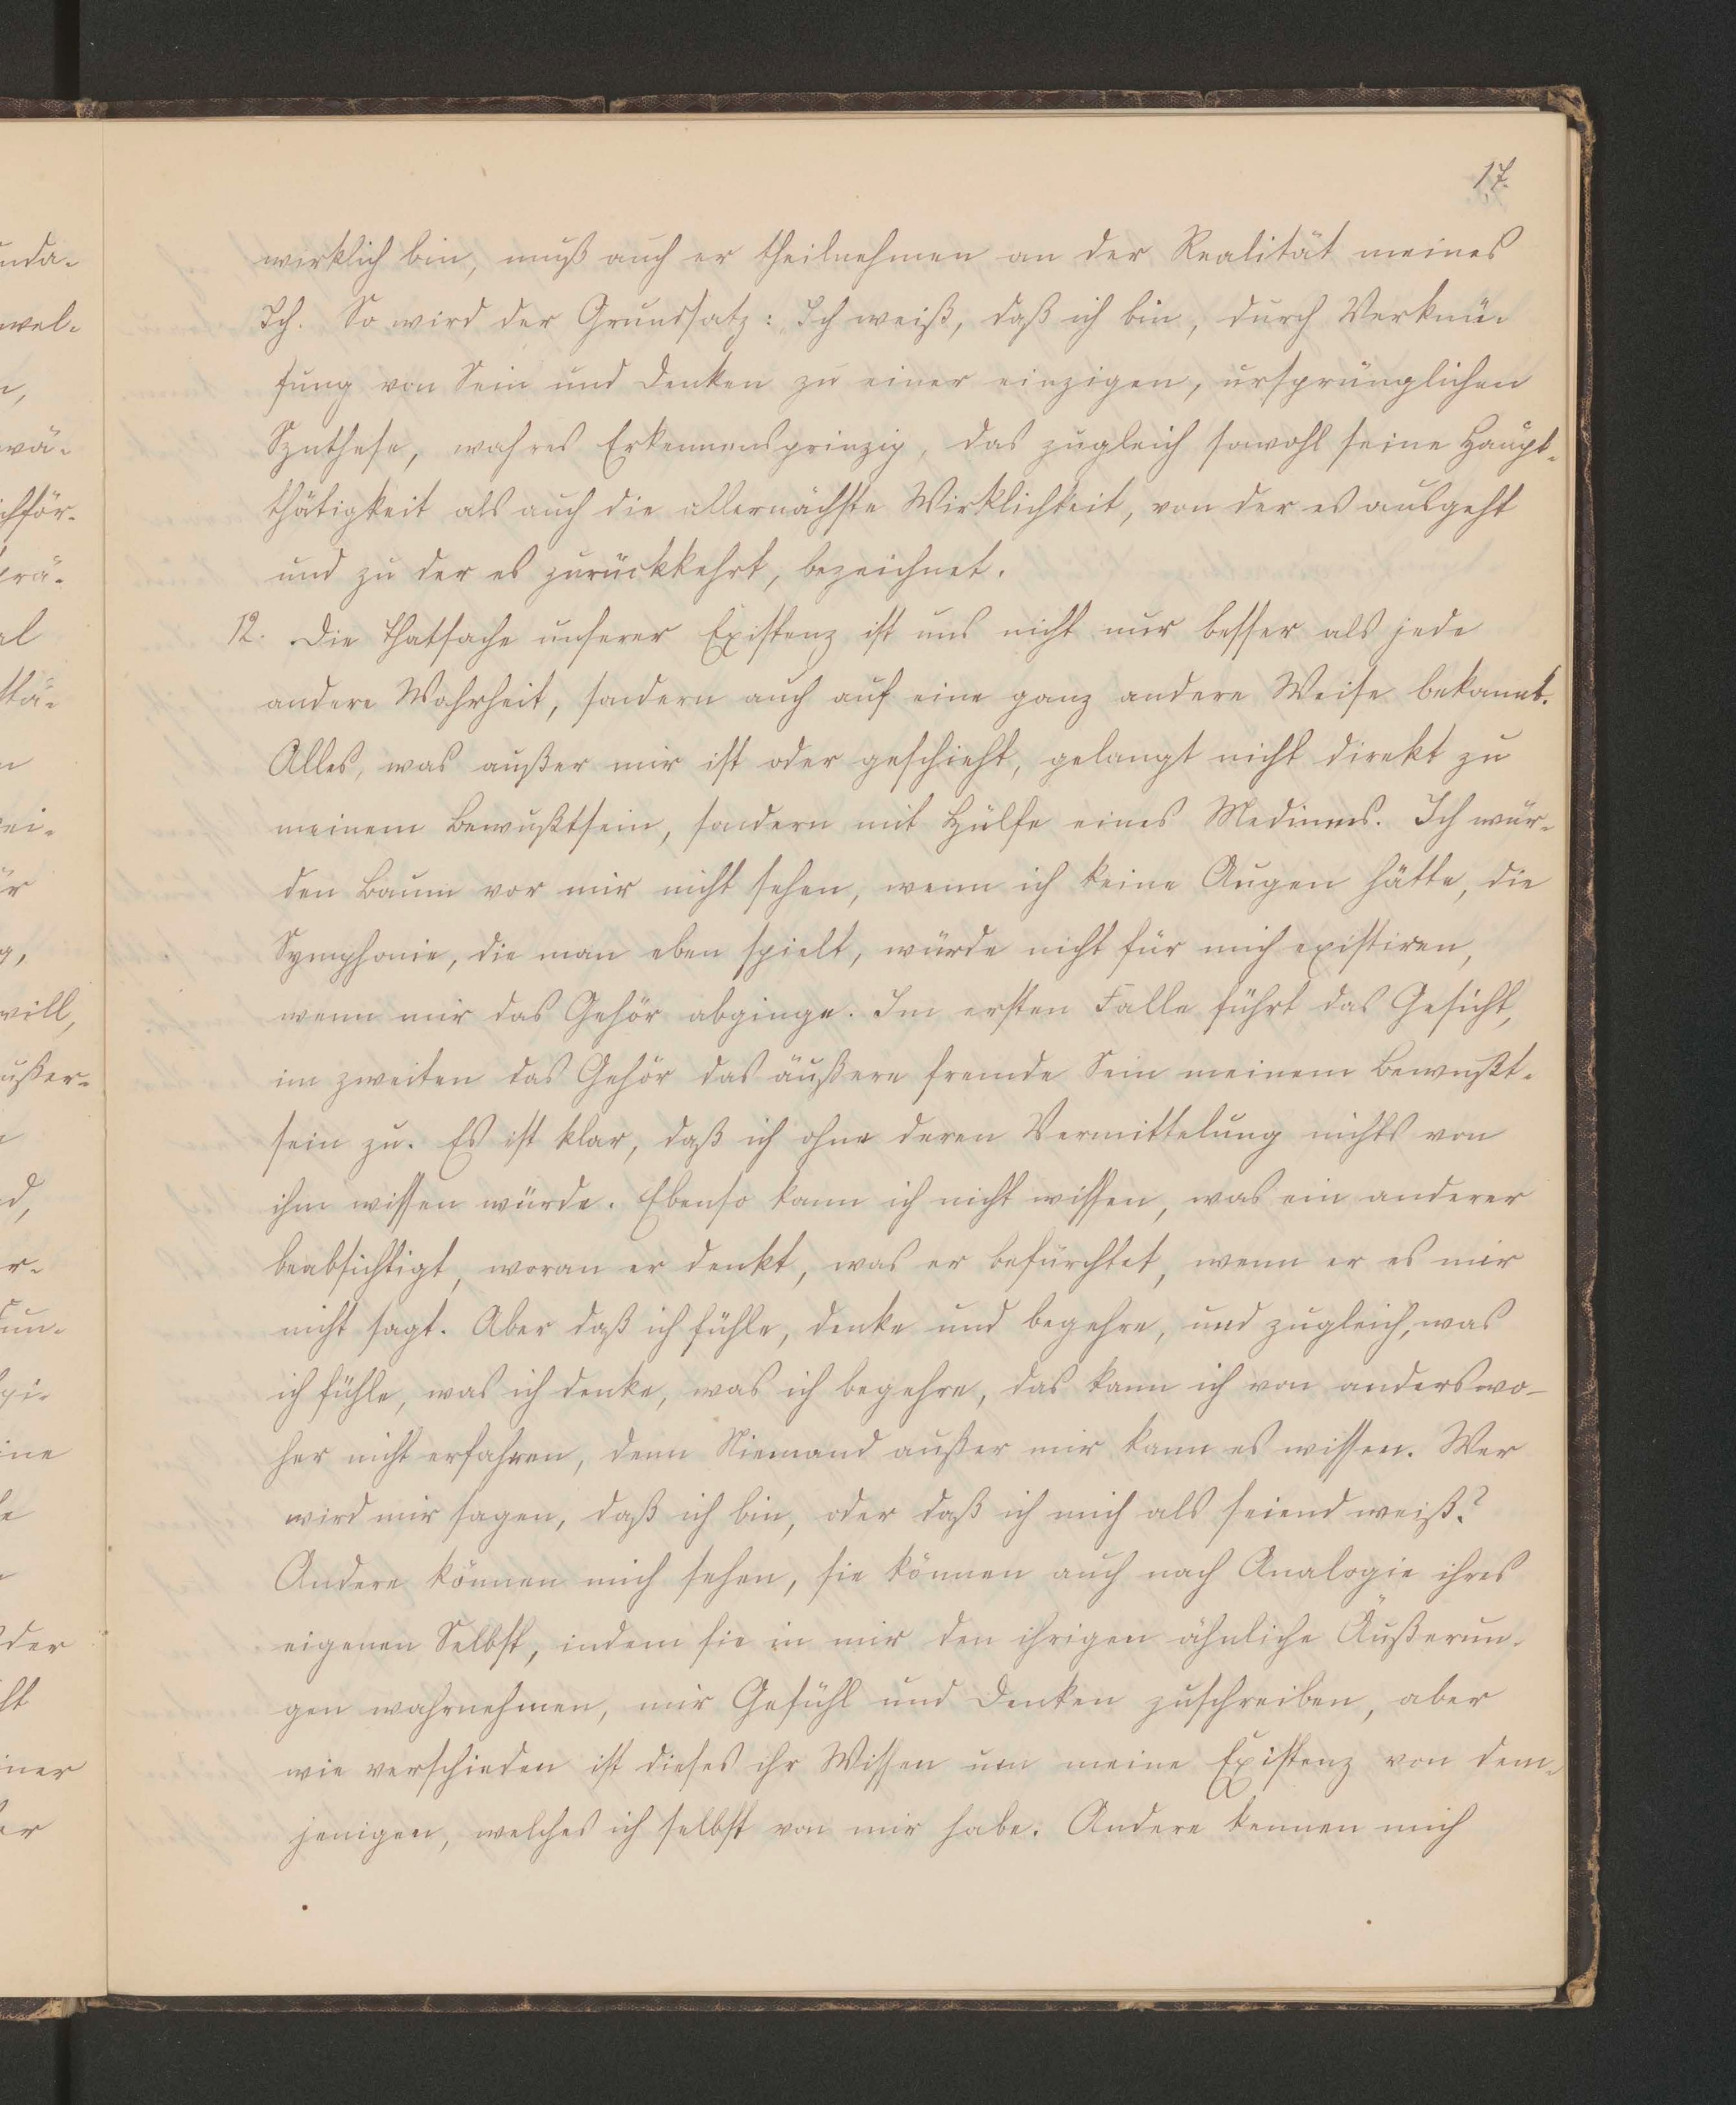 17.
wirklich bin, muß auch er theilnehmen an der Realität meines
Ich. So wird der Grundsatz: Ich weiß, daß ich bin, durch Verknü-
fung von Sein und Denken zu einer einzigen, ursprünglichen
Synthese, wahres Erkennensprinzip, das zugleich sowohl seine Haupt-
thätigkeit als auch die allernächste Wirklichkeit, von der es ausgeht
und zu der es zurückkehrt, bezeichnet.
12. Die Thatsache unserer Existenz ist uns nicht nur besser als jede
andere Wahrheit, sondern auch auf eine ganz andere Weise bekannt.
Alles, was außer mir ist oder geschieht, gelangt nicht direkt zu
meinem Bewußtsein, sondern mit Hülfe eines Mediums. Ich wür-
den Baum vor mir nicht sehen, wenn ich keine Augen hätte, die
Symphonie, die man eben spielt, würde nicht für mich existiren,
wenn mir das Gehör abginge. Im ersten Falle führt das Gesicht,
im zweiten das Gehör das äußere fremde Sein meinem Bewußt-
sein zu. Es ist klar, daß ich ohne deren Vermittelung nichts von
ihm wissen würde. Ebenso kann ich nicht wissen, was ein anderer
beabsichtigt, woran er denkt, was er befürchtet, wenn er es mir
nicht sagt. Aber daß ich fühle, denke und begehre, und zugleich, was
ich fühle, was ich denke, was ich begehre, das kann ich von anderswo-
her nicht erfahren, denn Niemand außer mir kann es wissen. Wer
wird mir sagen, daß ich bin, oder daß ich mich als seiend weiß?
Andere können mich sehen, sie können auch nach Analogie ihres
eigenen Selbst, indem sie in mir den ihrigen ähnliche Äußerun-
gen wahrnehmen, mir Gefühl und Denken zuschreiben, aber
wie verschieden ist dieses ihr Wissen um meine Existenz von dem-
jenigen, welches ich selbst von mir habe. Andere kennen mich